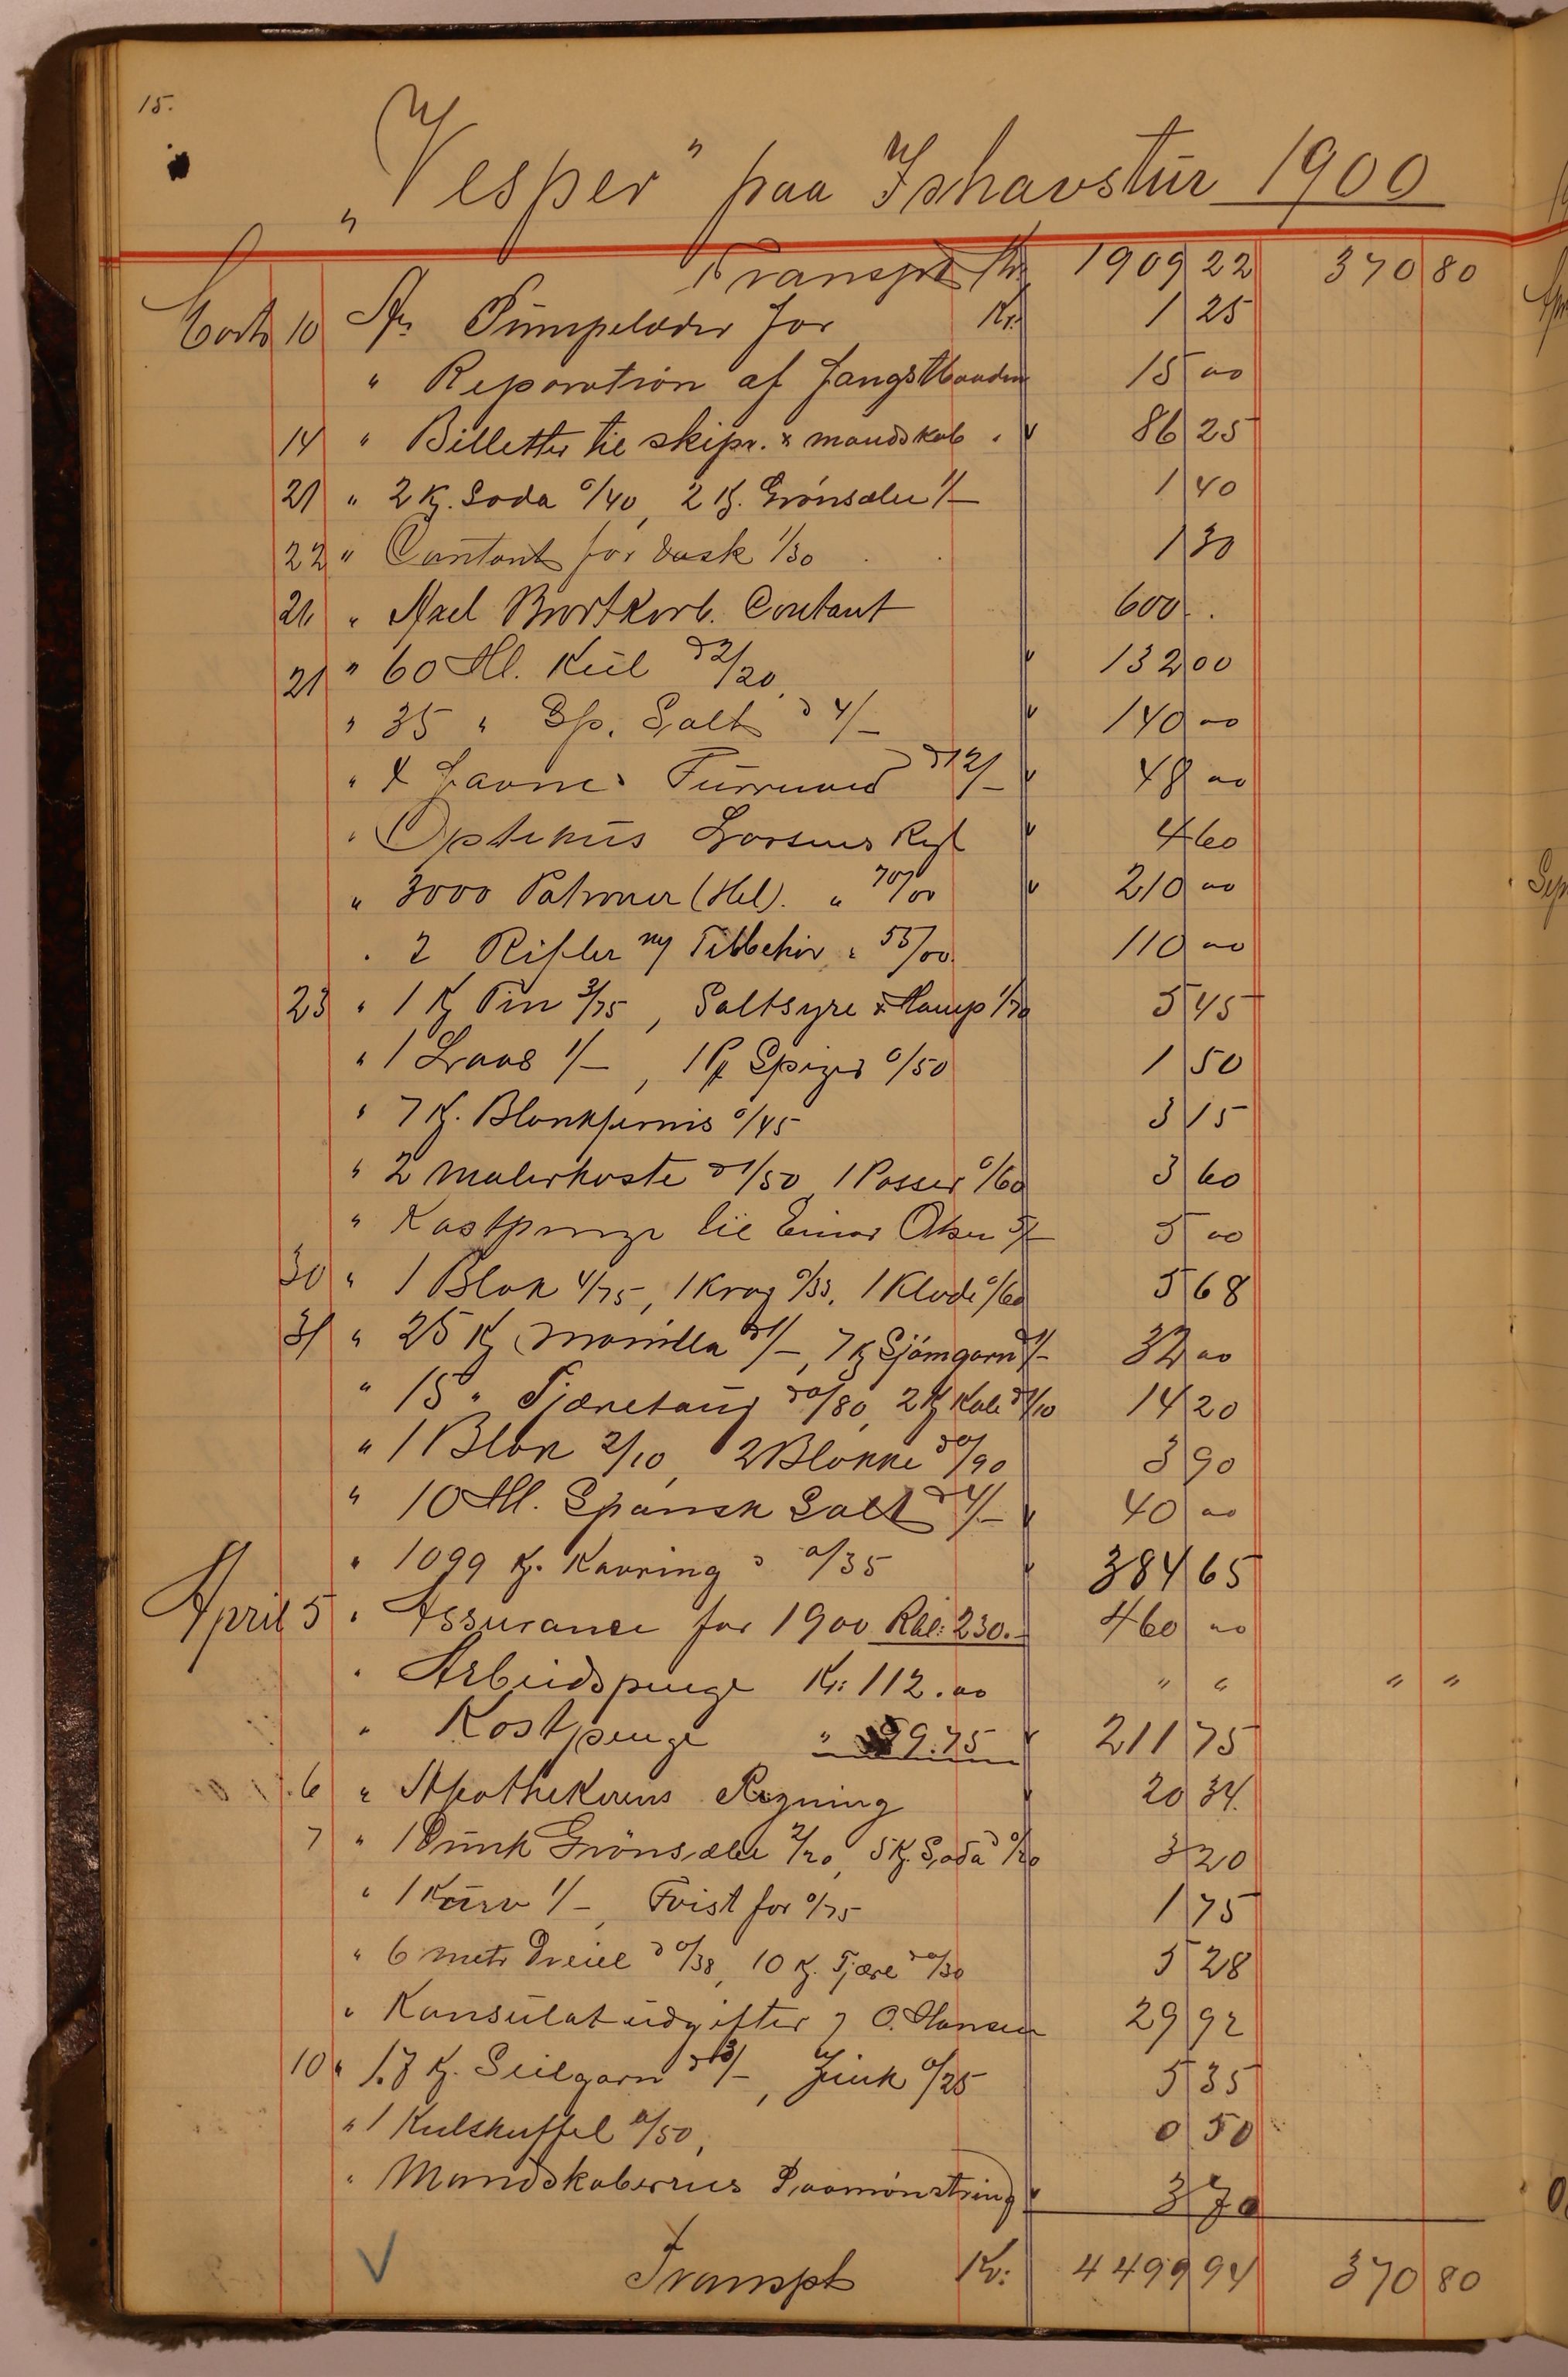 15.
"Vesper" paa Ishavstur 1900
Transpt Kr. 1909 22 370 80
Marts 10 Pr. Pumpelæder for Kr. 1 25
" Reparation af Fangstbaaden 15 00
14 " Billetter til skipr. & mandskab " 86 25
21 " 2 Kg. Soda 0/40, 2 Kg. Grönsæbe 1/- 1 40
22 " Contant for Vask 1/30 1 30
21 " Axel Contant 600 .
21 " 60 Hl. Kul à 2/20 132 00
" 35 " Sp. Salt à 4/- 140 00
" 4 Favne Furuved à 12/- 48 00
" Optikus Larsens Reg 4 60
" 3000 Patroner (Hel). " 70/00 210 00
" 2 Rifler m/ Tilbehör " 55/00 110 00
23 " 1 Kg Tin 3/75, Saltsyre & Hamp 1/70 5 45
" 1 Laas 1/-, 1 Pk Spiger 0/50 1 50
" 7 Kg. Blankfernis 0/45 3 15
" 2 Malerkoste à 1/50 1 Passer 0/60 3 60
" Kostpenge til Einar Olsen 5/- 5 00
30 " 1 Blok 4/75, 1 Krog 0/33, 1 Klode 0/60 5 68
31 " 25 Kg Manilla à 1/-, 7 Kg Sjömgarn à 1/- 32 00
" 15 " Tjæretaug à 0/80, 2 Kg à 1/10 14 20
" 1 Blok 2/10, 2 Blokke à 0/90 3 90
" 10 Hl. Spansk Salt à 4/- 40 00
" 1099 Kg. Kavring à 0/35 384 65
April 5 " Assurance for 1900 Rbl: 230.- 460 00
" Arbeidspenge Kr: 112.00 " " " "
" Kostpenge " 99.75 211 75
6 " Apothekerens Regning 20 34
7 " 1 Dunk Grönsæbe 2/20, 5 Kg. Soda à 0/20 3 20
" 1 Kurv 1/-, Tvist for 0/75 1 75
" 6 metr Dreiel à 0/38, 10 Kg. Tjære à 0/30 5 28
" Konsulatudgifter O. Hansen 29 92
10 " 1.7 Kg. Seilgarn à 3/-, Zink 0/25 5 35
" 1 Kulskuffel 0/50, 0 50
" Mandskabernes Paamönstring 3 70
Transpt Kr: 4499 94 370 80